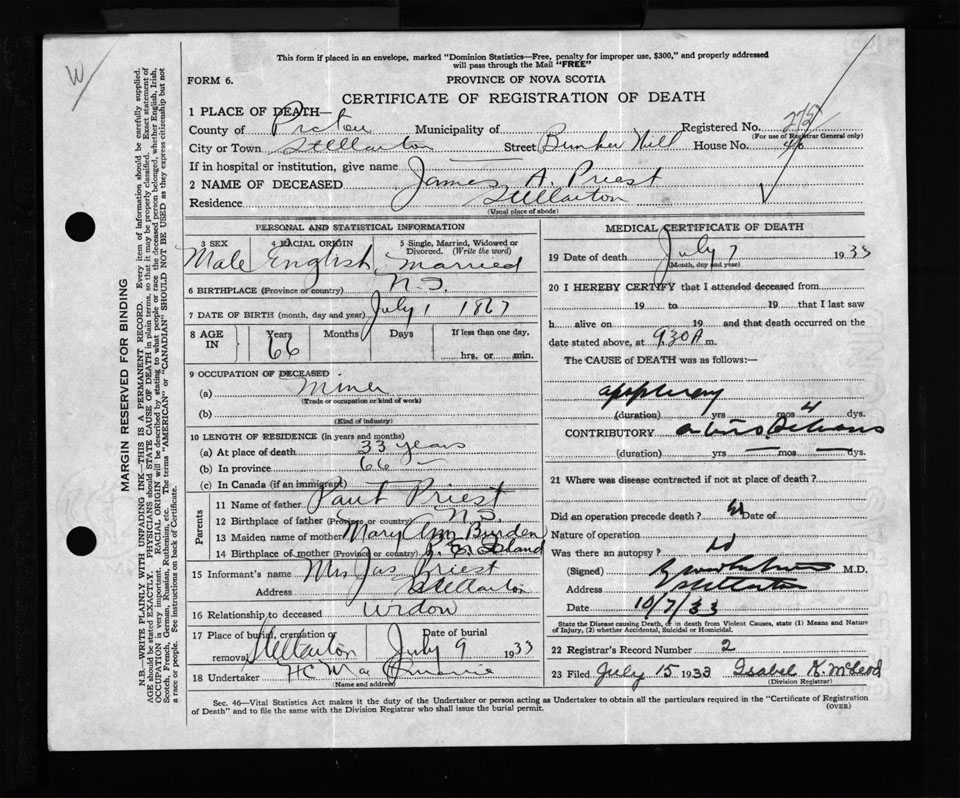 W
This form if placed in an envelope, marked "Dominion Statistics—Free, penalty for improper use, $300," and properly addressed
will pass through the Mail "FREE"
FORM 6.
PROVINCE OF NOVA SCOTIA
CERTIFICATE OF REGISTRATION OF DEATH
1 PLACE OF DEATH—
County of Pictou Municipality of Registered No.
(For use of Registrar General only)
City or Town Stellarton Street Bunker Hill House No.
If in hospital or institution, give name —
2 NAME OF DECEASED James A. Priest
Residence Stellarton
(Usual place of abode)
PERSONAL AND STATISTICAL INFORMATION
3 SEX 4 RACIAL ORIGIN 5 Single, Married, Widowed or
Divorced. (Write the word)
Male English Married
6 BIRTHPLACE (Province or country) N.S.
7 DATE OF BIRTH (month, day and year) July 1 1867
8 AGE IN Years Months Days If less than one day,
66 hrs. or min.
9 OCCUPATION OF DECEASED
(a) Miner
(Trade or occupation or kind of work)
(b)
(Kind of industry)
10 LENGTH OF RESIDENCE (in years and months)
(a) At place of death 33 years
(b) In province 66 —
(c) In Canada (if an immigrant)
Parents
11 Name of father Paul Priest
12 Birthplace of father (Province or country) N.S.
13 Maiden name of mother Mary Ann Burden
14 Birthplace of mother (Province or country) P. E. Island
15 Informant's name Mrs Jas Priest
Address Stellarton
16 Relationship to deceased Widow
17 Place of burial, cremation or Date of burial
removal Stellarton July 9 1933
18 Undertaker H C
(Name and address)
MEDICAL CERTIFICATE OF DEATH
19 Date of death July 7 1933
(Month, day and year)
20 I HEREBY CERTIFY that I attended deceased from
19 to 19 that I last saw
h alive on 19 and that death occurred on
date stated above, at 9.30 A m.
The CAUSE of DEATH was as follows:—
(duration) yrs mos 4 dys.
CONTRIBUTORY
(duration) yrs — mos — dys.
21 Where was disease contracted if not at place of death?
Did an operation precede death? Date of
Nature of operation
Was there an autopsy? no
(Signed) M.D.
Address Stellarton
Date 10/7/33
State the Disease causing Death, or in death from Violent Causes, state (1) Means and Nature
of Injury, (2) whether Accidental, Suicidal or Homicidal.
22 Registrar's Record Number 2
23 Filed July 15 1933 Isabel K. McLeod
(Division Registrar)
Sec. 46—Vital Statistics Act makes it the duty of the Undertaker or person acting as Undertaker to obtain all the particulars required in the "Certificate of Registration
of Death" and to file the same with the Division Registrar who shall issue the burial permit. (OVER)
MARGIN RESERVED FOR BINDING
N.B.—WRITE PLAINLY WITH UNFADING INK—THIS IS A PERMANENT RECORD. Every item of information should be carefully supplied.
AGE should be stated EXACTLY. PHYSICIANS should STATE CAUSE OF DEATH in plain terms, so that it may be properly classified. Exact statement of
OCCUPATION is very important. RACIAL ORIGIN will be described by stating to what people or race the deceased person belonged, whether English, Irish,
Scotch, French, German, Russian, Ruthenian, etc. The terms "AMERICAN" or "CANADIAN" SHOULD NOT BE USED as they express citizenship but not
a race or people. See instructions on back of Certificate.